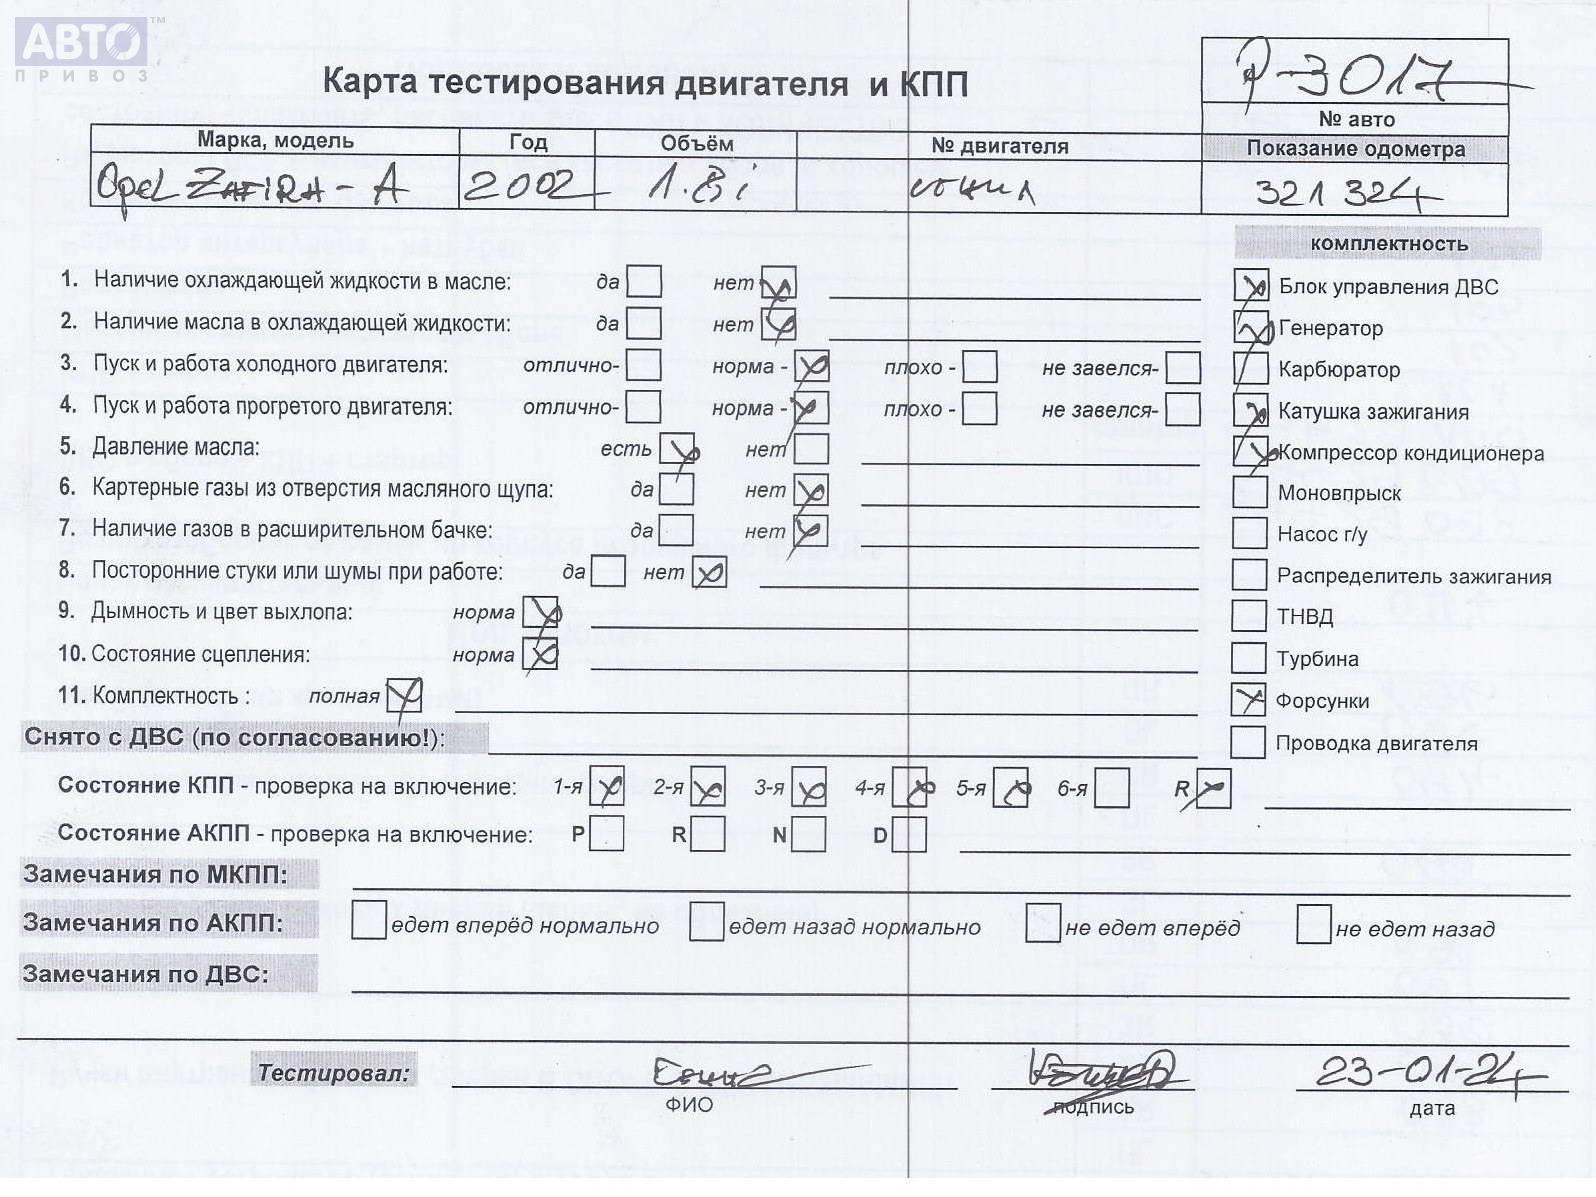 АВТО™
ПРИВОЗ
Карта тестирования двигателя и КПП
P-3017
№ авто
Марка, модель Год Объём № двигателя Показание одометра
Opel ZAFIRA-A 2002 1.8i 321 324
комплектность
1. Наличие охлаждающей жидкости в масле: да нет
Блок управления ДВС
2. Наличие масла в охлаждающей жидкости: да нет
Генератор
3. Пуск и работа холодного двигателя: отлично- норма - плохо - не завелся-
Карбюратор
4. Пуск и работа прогретого двигателя: отлично- норма - плохо - не завелся-
Катушка зажигания
5. Давление масла: есть нет
Компрессор кондиционера
6. Картерные газы из отверстия масляного щупа: да нет
Моновпрыск
7. Наличие газов в расширительном бачке: да нет
Насос г/у
8. Посторонние стуки или шумы при работе: да нет
Распределитель зажигания
9. Дымность и цвет выхлопа: норма
ТНВД
10. Состояние сцепления: норма
Турбина
11. Комплектность : полная
Форсунки
Снято с ДВС (по согласованию!):
Проводка двигателя
Состояние КПП - проверка на включение: 1-я 2-я 3-я 4-я 5-я 6-я R
Состояние АКПП - проверка на включение: P R N D
Замечания по МКПП:
Замечания по АКПП: едет вперёд нормально едет назад нормально не едет вперёд не едет назад
Замечания по ДВС:
Тестировал: 23-01-24
ФИО подпись дата